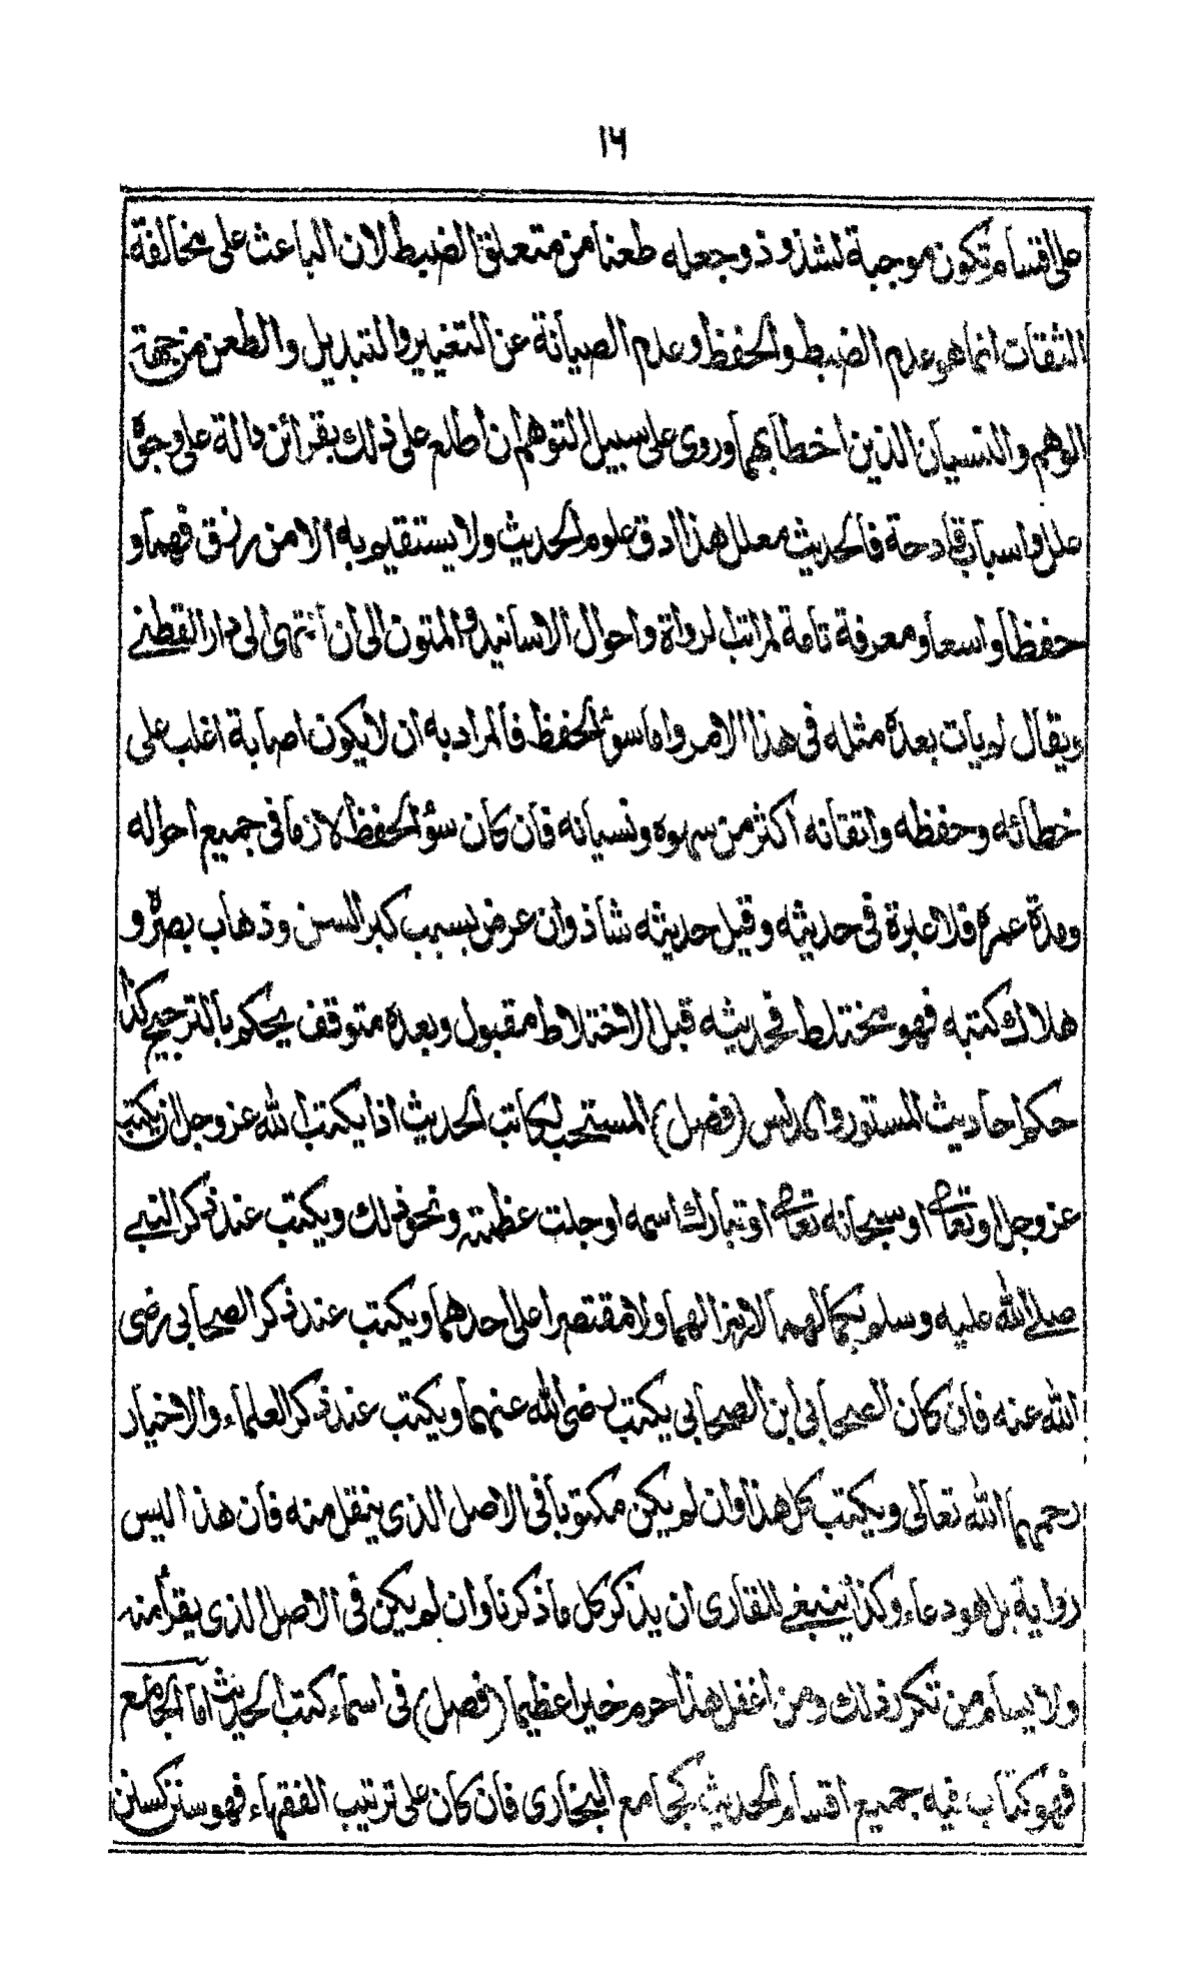 ١٦
على اقسام تكون موجبة لشذوذ وجعله طعنا من متعلق الضبط لان الباعث على مخالفة
الثقات انما هو عدم الضبط والحفظ وعدم الصيانة عن التغيير والتبديل والطعن من جهة
الوهم والنسيان الذين اخطا بهما وروى على سبيل التوهم ان اطلع على ذلك بقرائن دالة على وجوه
علل واسباب قادحة فالحديث معلل هذا ادق علوم الحديث ولا يستقيم به الا من رزق فهما و
حفظا واسعا ومعرفة تامة لمراتب لرواة واحوال الاسانيد والمتون الى ان انتهى الى دار القطنے
ويقال لم يات بعده مثله فى هذا الامر واما سوء الحفظ فالمراد به ان لا يكون اصابة اغلب على
خطائه وحفظه واتقانه اكثر من سهوه ونسيانه فان كان سوء الحفظ لازما فى جميع احواله
ومدة عمره فلا عبرة فى حديثه وقيل حديثه شاذ وان عرض بسبب كبر السن وذهاب بصره و
هلاك كتبه فهو مختلط فحديثه قبل الاختلاط مقبول وبعده متوقف يحكم بالترجيح كذا
حكم احاديث المستور والمدلس (فصل) المستحب لكاتب الحديث اذا يكتب الله عز وجل ان يكتب
عز وجل او تعالى او سبحانه تعالى او تبارك اسمه او جلت عظمته ونحو ذلك ويكتب عند ذكر النبے
صلے الله عليه وسلم بكمالهما لا رمزا لهما ولا مقتصرا على احدهما ويكتب عند ذكر الصحابى رضى
الله عنه فان كان الصحابى ابن الصحابى يكتب رضى الله عنهما ويكتب عند ذكر العلماء والاخيار
رحمهما الله تعالى ويكتب كل هذا وان لم يكن مكتوبا فى الاصل الذى ينقل منه فان هذا ليس
رواية بل هو دعاء وكذا ينبغے للقارى ان يذكر كل ما ذكرنا وان لم يكن فى الاصل الذى يقرأ منه
ولا يسأم من تكرر ذلك ومن اغفل هذا حرم خيرا عظيما (فصل) فى اسماء كتب الحديث اما الجامع
فهو كتاب فيه جميع اقسام الحديث كجامع البخارى فان كان على ترتيب الفقهاء فهو سنن كسنن